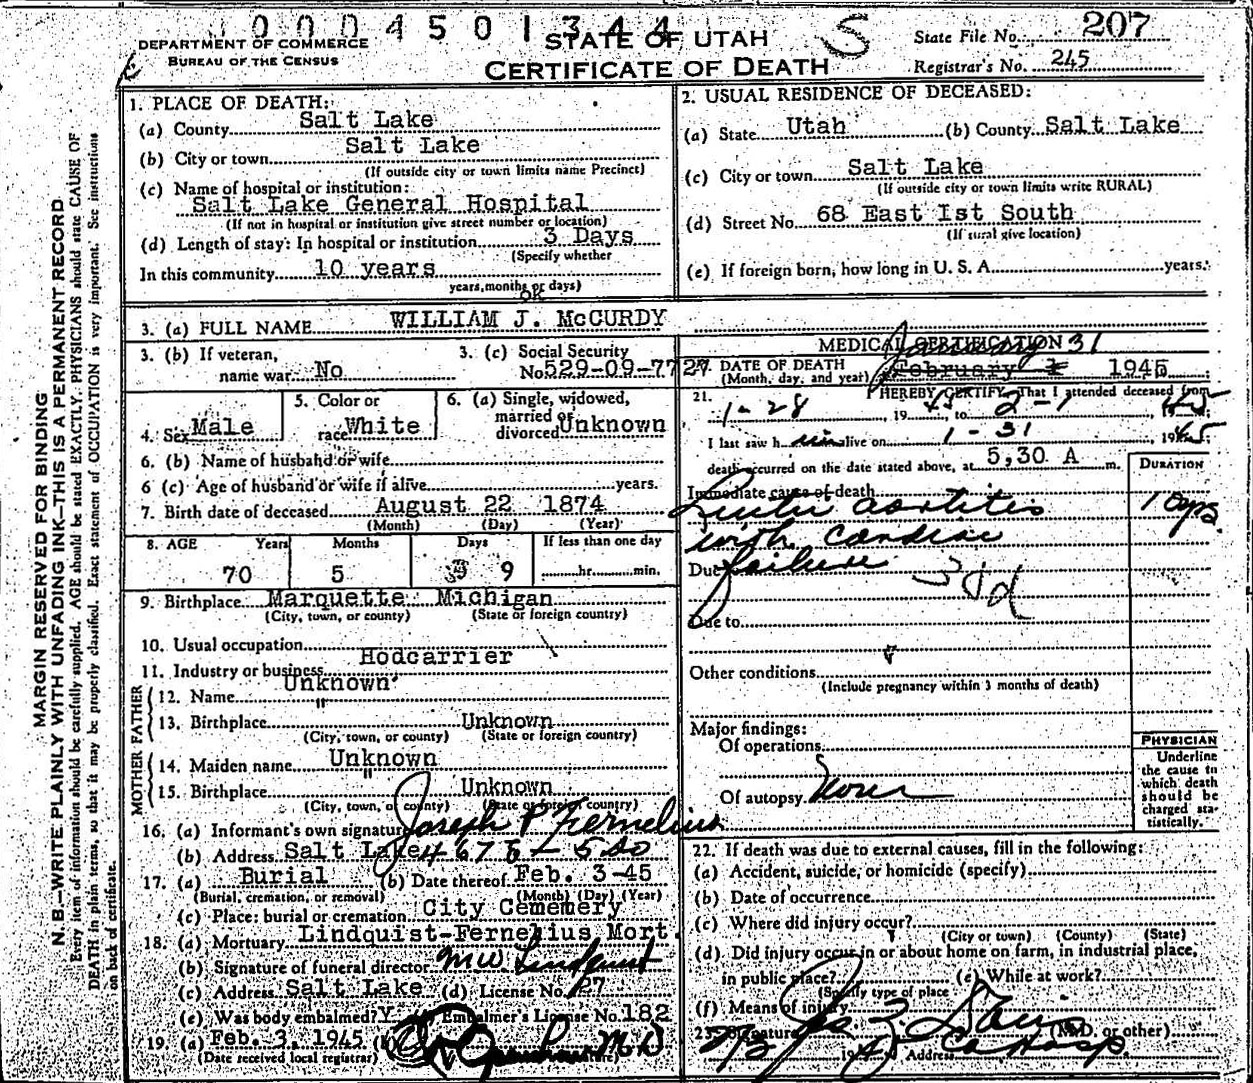 0 0 0 4 5 0 1 3 4 4
DEPARTMENT OF COMMERCE
BUREAU OF THE CENSUS
STATE OF UTAH
CERTIFICATE OF DEATH
S
State File No. 207
Registrar's No. 245
MARGIN RESERVED FOR BINDING
N. B.—WRITE PLAINLY WITH UNFADING INK—THIS IS A PERMANENT RECORD
Every item of information should be carefully supplied. AGE should be stated EXACTLY. PHYSICIANS should state CAUSE OF
DEATH in plain terms, so that it may be properly classified. Exact statement of OCCUPATION is very important. See instructions
on back of certificate.
1. PLACE OF DEATH:
(a) County Salt Lake
(b) City or town Salt Lake
(If outside city or town limits name Precinct)
(c) Name of hospital or institution:
Salt Lake General Hospital
(If not in hospital or institution give street number or location)
(d) Length of stay: In hospital or institution 3 Days
(Specify whether
In this community 10 years
years, months or days)
OK
2. USUAL RESIDENCE OF DECEASED:
(a) State Utah (b) County Salt Lake
(c) City or town Salt Lake
(If outside city or town limits write RURAL)
(d) Street No. 68 East Ist South
(If rural give location)
(e) If foreign born, how long in U. S. A. years.
3. (a) FULL NAME WILLIAM J. McCURDY
3. (b) If veteran,
name war No
3. (c) Social Security
No. 529-09-7727
4. Sex Male
5. Color or
race White
6. (a) Single, widowed,
married or
divorced Unknown
6. (b) Name of husband or wife
6 (c) Age of husband or wife if alive years.
7. Birth date of deceased August 22 1874
(Month) (Day) (Year)
8. AGE Years Months Days If less than one day
70 5 9 hr. min.
9. Birthplace Marquette Michigan
(City, town, or county) (State or foreign country)
10. Usual occupation
Hodcarrier
11. Industry or business
FATHER
12. Name Unknown
13. Birthplace " Unknown
(City, town, or county) (State or foreign country)
MOTHER
14. Maiden name Unknown
15. Birthplace " Unknown
(City, town, or county) (State or foreign country)
16. (a) Informant's own signature Joseph P Fernelius
(b) Address Salt Lake 467 E - 5 So
17. (a) Burial (b) Date thereof Feb. 3-45
(Burial, cremation, or removal) (Month) (Day) (Year)
(c) Place: burial or cremation City Cemetery
18. (a) Mortuary Lindquist-Fernelius Mort.
(b) Signature of funeral director M W. Lindquist
(c) Address Salt Lake (d) License No. 27
(e) Was body embalmed? Y Embalmer's License No. 182
19. (a) Feb. 3, 1945 (b) M D
(Date received local registrar)
MEDICAL CERTIFICATION
January 31
20. DATE OF DEATH February 1 1945
(Month, day, and year)
21. I HEREBY CERTIFY, That I attended deceased from
1-28 1945 to 2-1 1945
I last saw him alive on 1-31, 1945
death occurred on the date stated above, at 5,30 A m.
DURATION
Immediate cause of death
Luetic aortitis
with cardiac
failure
Due
30d
Due to
Other conditions
(Include pregnancy within 3 months of death)
Major findings:
Of operations
Of autopsy None
PHYSICIAN
Underline
the cause to
which death
should be
charged sta-
tistically.
22. If death was due to external causes, fill in the following:
(a) Accident, suicide, or homicide (specify)
(b) Date of occurrence
(c) Where did injury occur?
(City or town) (County) (State)
(d) Did injury occur in or about home on farm, in industrial place,
in public place? (e) While at work?
(Specify type of place
(f) Means of injury
23. Signature Davis (M.D. or other)
2/2 1945 Address Co Hosp.